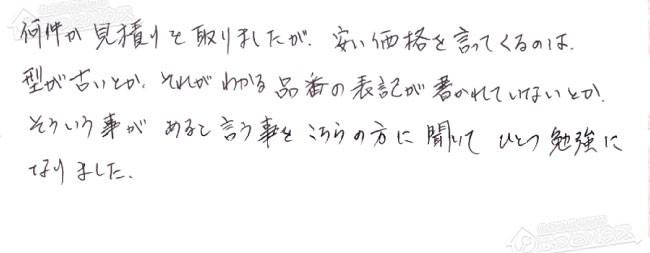 何件か見積りを取りましたが、安い価格を言ってくるのは、
型が古いとか、それがわかる品番の表記が書かれていないとか、
そういう事があると言う事をこちらの方に聞いてひとつ勉強に
なりました。